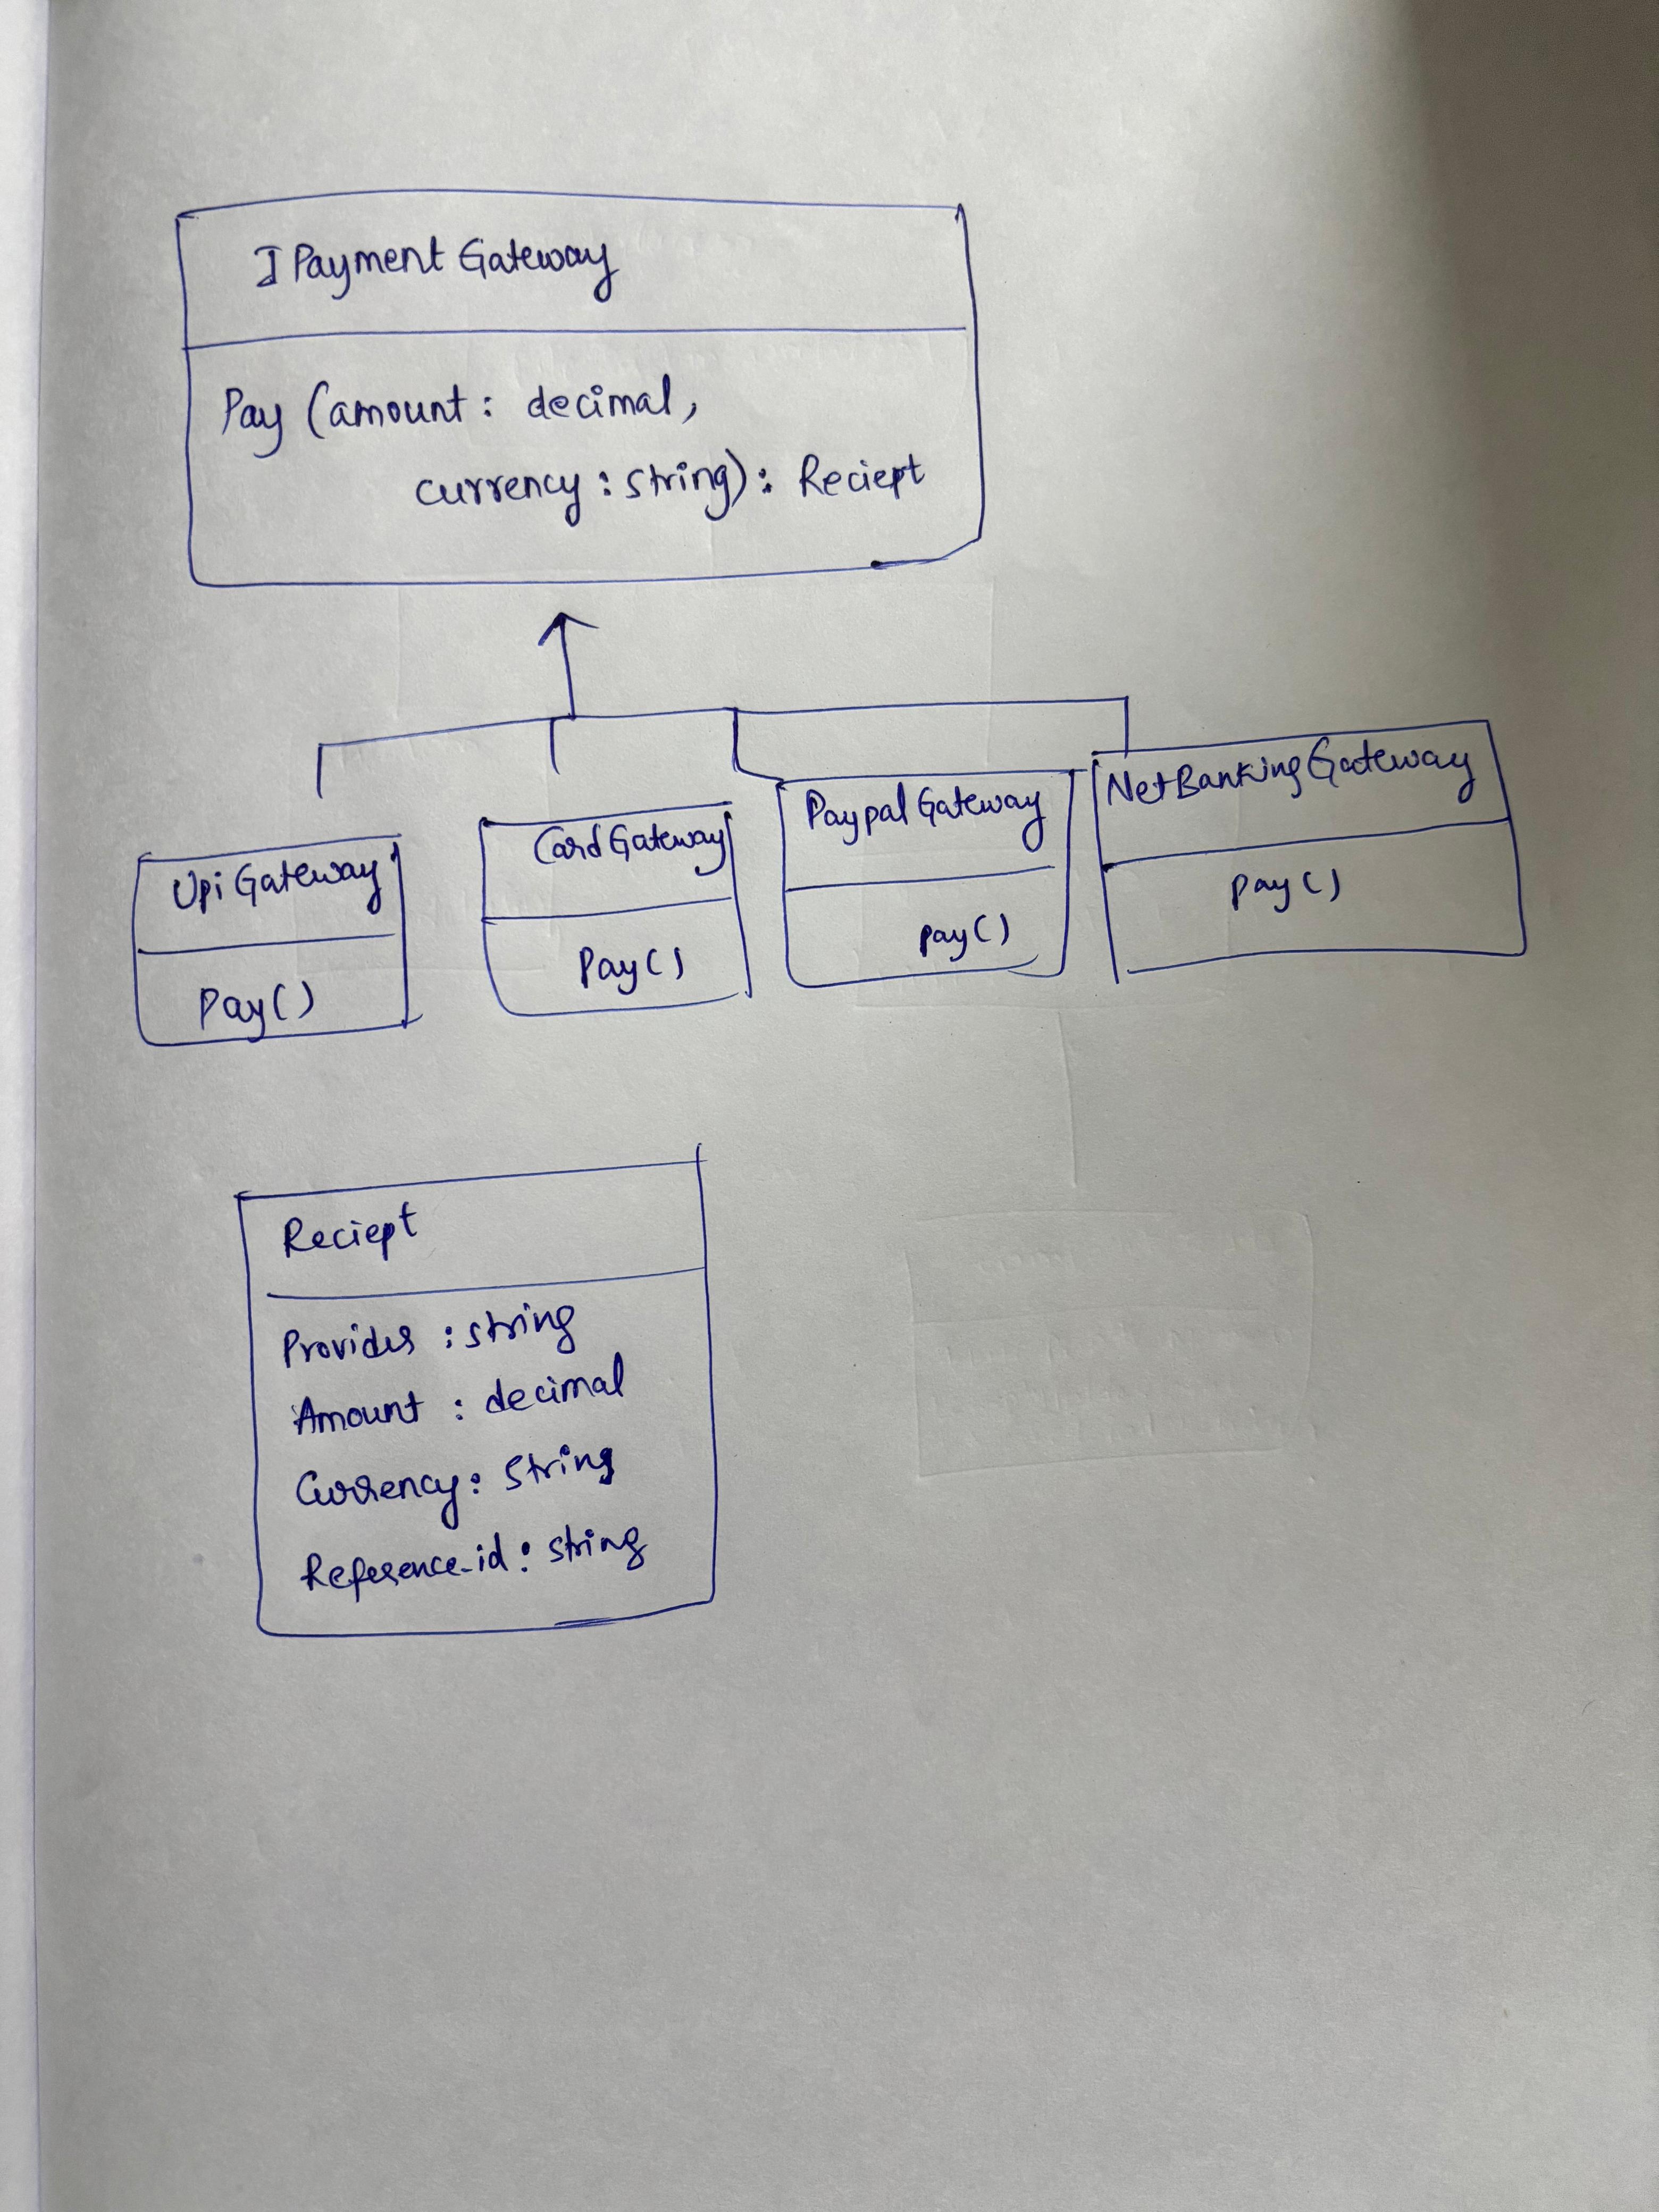 IPayment Gateway
Pay (amount: decimal,
currency: string): Reciept
Upi Gateway
Pay()
Card Gateway
Pay()
Paypal Gateway
pay()
NetBanking Gateway
pay()
Reciept
Provider : string
Amount : decimal
Currency: String
Reference-id: string